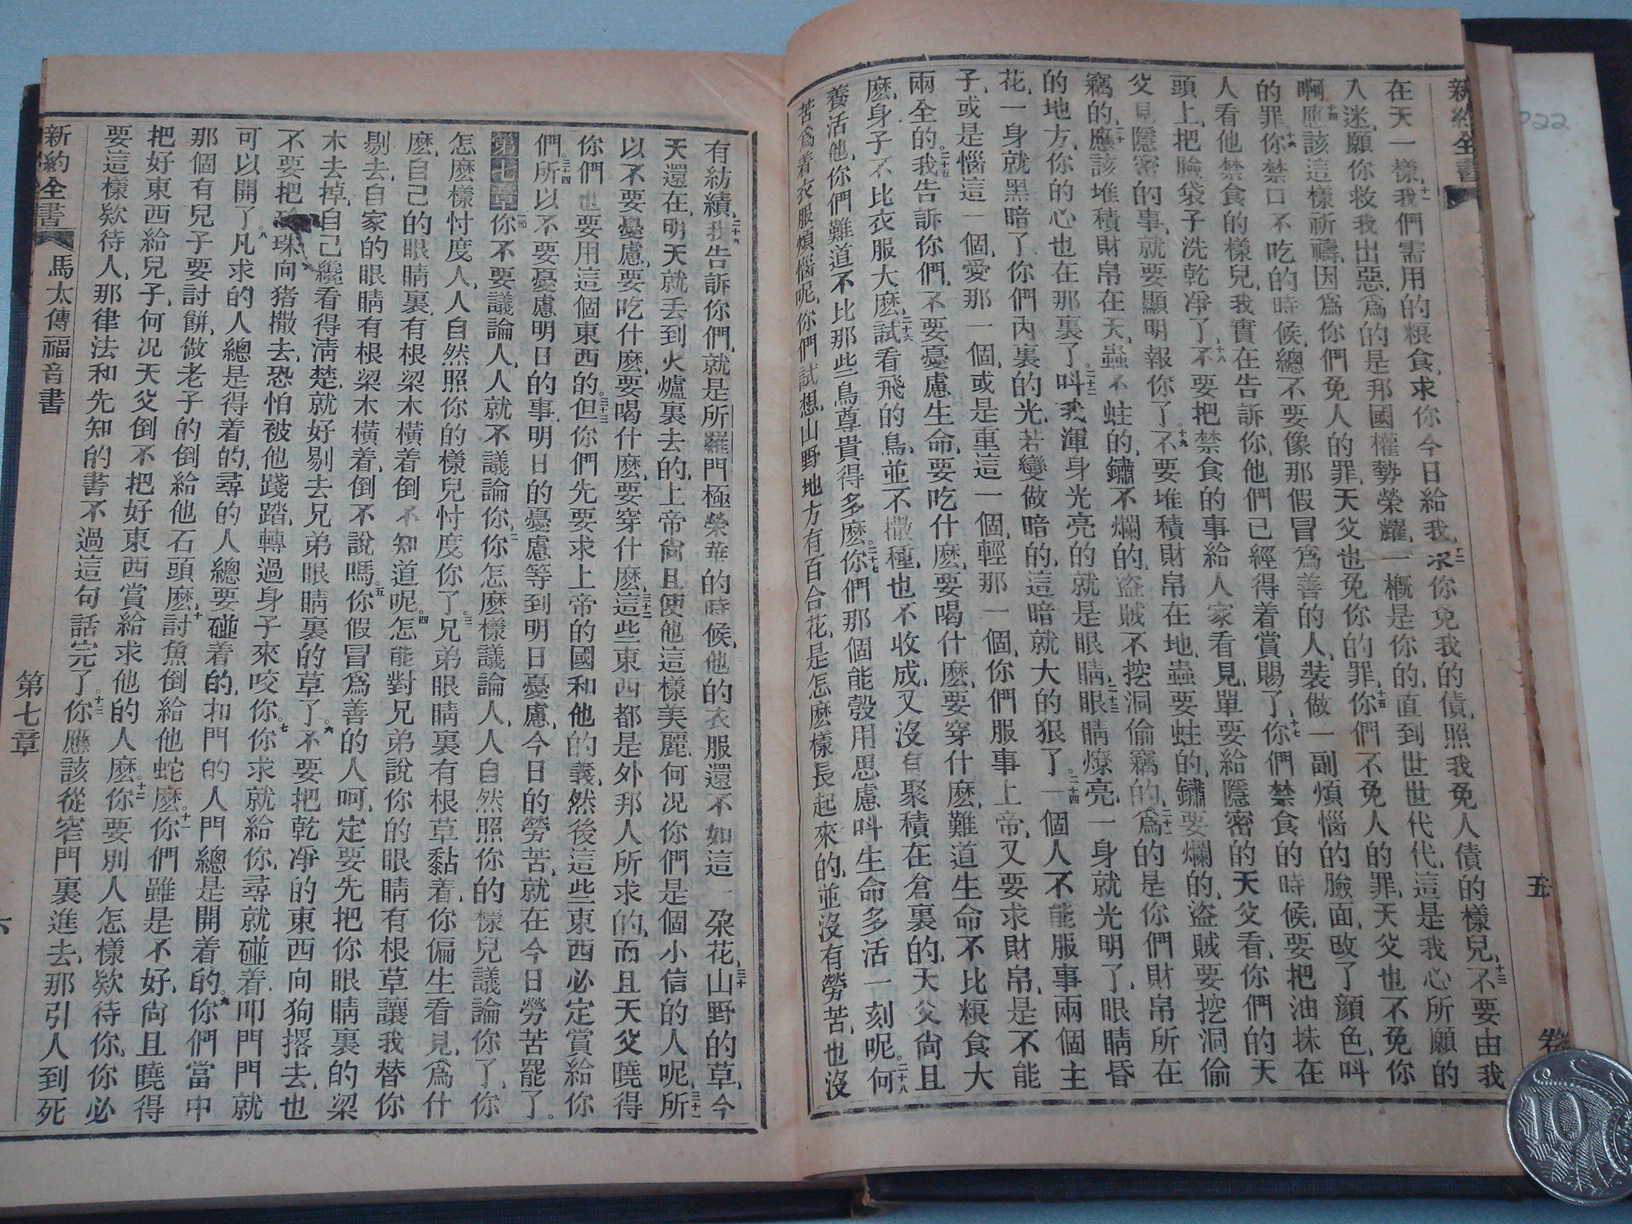 新約全書 五 卷
在天一樣、我們需用的粮食、求你今日給我、求你免我的債、照我免人債的樣兒、不要由我
入迷、願你救我出惡、爲的是那國權勢榮耀、一概是你的、直到世世代代、這是我心所願的
啊、應該這樣祈禱、因爲你們免人的罪、天父也免你的罪、你們不免人的罪、天父也不免你
的罪、你禁口不吃的時候、總不要像那假冒爲善的人、裝做一副煩惱的臉面、改了顏色、叫
人看他禁食的樣兒、我實在告訴你、他們已經得着賞賜了、你們禁食的時候、要把油抹在
頭上、把臉袋子洗乾凈了、不要把禁食的事給人家看見、單要給隱密的天父看、你們的天
父見隱密的事、就要顯明報你了。不要堆積財帛在地、蟲要蛀的、鏽要爛的、盜賊要挖洞偷
竊的、應該堆積財帛在天、蟲不蛀的、鏽不爛的、盜賊不挖洞偷竊的、爲的是你們財帛所在
的地方、你的心也在那裏了。叫我渾身光亮的就是眼睛、眼睛燎亮、一身就光明了、眼睛昏
花、一身就黑暗了、你們內裏的光、若變做暗的、這暗就大的狠了。一個人不能服事兩個主
子、或是惱這一個、愛那一個、或是重這一個、輕那一個、你們服事上帝、又要求財帛、是不能
兩全的、我告訴你們、不要憂慮生命、要吃什麼、要喝什麼、要穿什麼、難道生命不比粮食大
麽、身子不比衣服大麽、試看飛的鳥、並不撒種、也不收成、又沒有聚積在倉裏的、天父尙且
養活他、你們難道不比那些鳥尊貴得多麽。你們那個能彀用思慮叫生命多活一刻呢。何
苦爲着衣服煩惱呢、你們試想、山野地方有百合花、是怎麽樣長起來的、並沒有勞苦、也沒
有紡績、我告訴你們、就是所羅門極榮華的時候、他的衣服還不如這一朶花、山野的草、今
天還在、明天就丢到火爐裏去的、上帝尙且使他這樣美麗、何况你們是個小信的人呢、所
以不要憂慮、要吃什麽、要喝什麽、要穿什麽、這些東西都是外邦人所求的、而且天父曉得
你們也要用這個東西的。但你們先要求上帝的國和他的義、然後這些東西必定賞給你
們、所以不要憂慮明日的事、明日的憂慮、等到明日憂慮、今日的勞苦、就在今日勞苦罷了。
第七章 你不要議論人、人就不議論你、你怎麽樣議論人、人自然照你的樣兒議論你了、你
怎麽樣忖度人、人自然照你的樣兒忖度你了、兄弟眼睛裏有根草黏着、你偏生看見、爲什
麽自己的眼睛裏、有根梁木橫着、倒不知道呢。怎能對兄弟說、你的眼睛有根草、讓我替你
剔去、自家的眼睛有根梁木橫着、倒不說嗎。你假冒爲善的人呵、定要先把你眼睛裏的梁
木去掉、自己纔看得淸楚、就好剔去兄弟眼睛裏的草了。不要把乾凈的東西向狗撂去、也
不要把珠向猪撒去、恐怕被他踐踏、轉過身子來咬你。你求就給你、尋就碰着、叩門門就
可以開了。凡求的人、總是得着的、尋的人、總要碰着的、扣門的人、門總是開着的、你們當中
那個有兒子要討餠、做老子的倒給他石頭麽、討魚倒給他蛇麽。你們雖是不好、尙且曉得
把好東西給兒子、何况天父倒不把好東西賞給求他的人麽。你要別人怎樣欵待你、你必
要這樣欵待人、那律法和先知的書、不過這句話完了。你應該從窄門裏進去、那引人到死
新約全書 馬太傳福音書 第七章 六
10